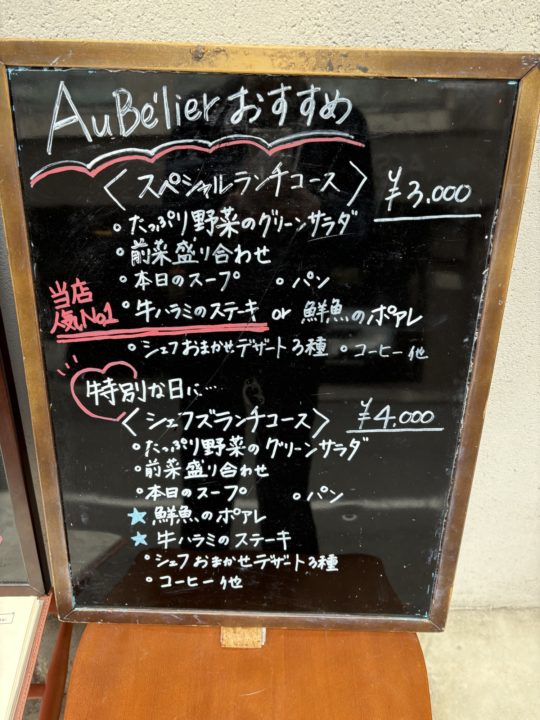 AuBélier おすすめ
〈スペシャルランチコース〉 ¥3.000
・たっぷり野菜のグリーンサラダ
・前菜盛り合わせ
・本日のスープ ・パン
当店
人気No.1
・牛ハラミのステーキ or 鮮魚のポアレ
・シェフおまかせデザート3種 ・コーヒー他
特別な日に…
〈シェフズランチコース〉 ¥4.000
・たっぷり野菜のグリーンサラダ
・前菜盛り合わせ
・本日のスープ ・パン
★鮮魚のポアレ
★牛ハラミのステーキ
・シェフおまかせデザート3種
・コーヒー他